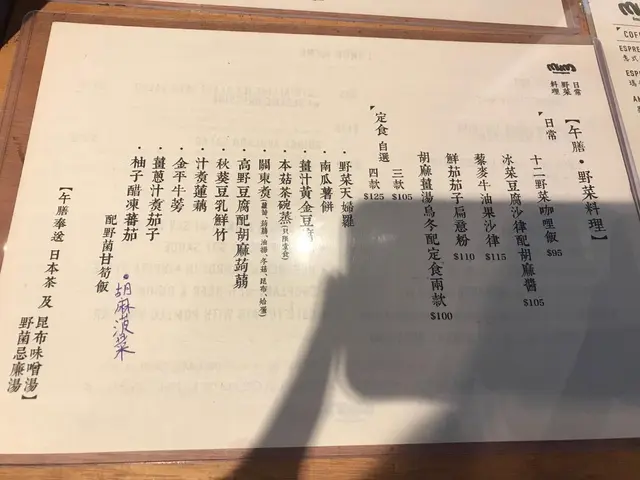 日常
野菜
料理
【午膳•野菜料理】
日常
十二野菜咖哩飯 $95
冰菜豆腐沙律配胡麻醬 $105
藜麥牛油果沙律 $115
鮮茄茄子扁意粉 $110
胡麻薑湯烏冬配定食兩款 $100
定食 自選
三款 $105
四款 $125
•野菜天婦羅
•南瓜薯餅
•薑汁黃金豆腐
•本菇茶碗蒸(只限堂食)
•關東煮
•高野豆腐配胡麻蒟蒻
•秋葵豆乳鮮竹
•汁煮蓮藕
•金平牛蒡
•薑蔥汁煮茄子
•柚子醋凍蕃茄
•胡麻菠菜
配野菌甘筍飯
【午膳奉送 日本茶 及 昆布味噌湯
野菌忌廉湯】
COFF
ESPRE